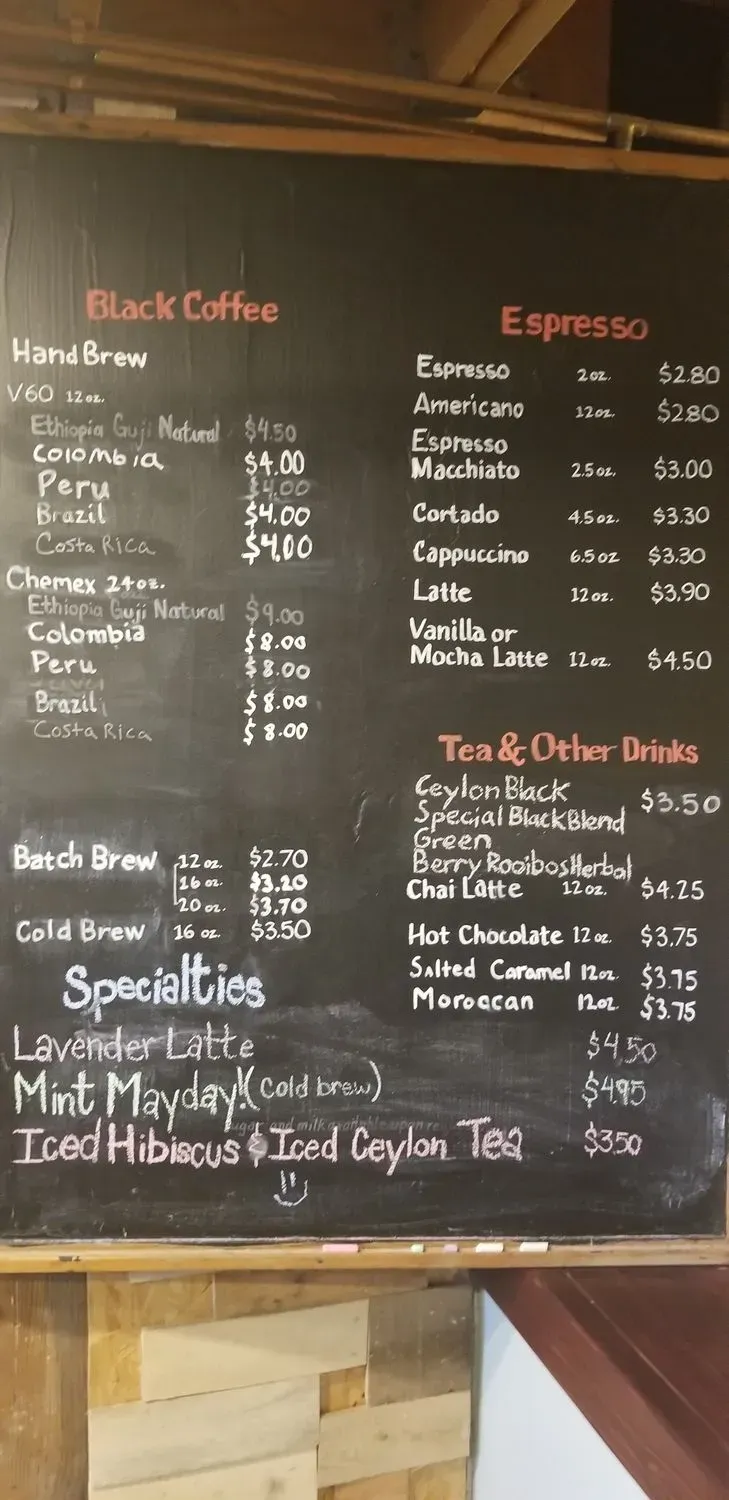 Black Coffee
Hand Brew
V60 12 oz.
Ethiopia Guji Natural $4.50
Colombia $4.00
Peru $4.00
Brazil $4.00
Costa Rica $4.00
Chemex 24 oz.
Ethiopia Guji Natural $9.00
Colombia $8.00
Peru $8.00
Brazil $8.00
Costa Rica $8.00
Batch Brew 12 oz. $2.70
16 oz. $3.20
20 oz. $3.70
Cold Brew 16 oz. $3.50
Espresso
Espresso 2 oz. $2.80
Americano 12 oz. $2.80
Espresso
Macchiato 2.5 oz. $3.00
Cortado 4.5 oz. $3.30
Cappuccino 6.5 oz $3.30
Latte 12 oz. $3.90
Vanilla or
Mocha Latte 12 oz. $4.50
Tea & Other Drinks
Ceylon Black $3.50
Special Black Blend
Green
Berry Rooibos Herbal
Chai Latte 12 oz. $4.25
Hot Chocolate 12 oz. $3.75
Salted Caramel 12oz. $3.75
Moroccan 12oz $3.75
Specialties
Lavender Latte $4.50
Mint Mayday! (Cold brew) $4.95
and milk available upon
Iced Hibiscus & Iced Ceylon Tea $3.50